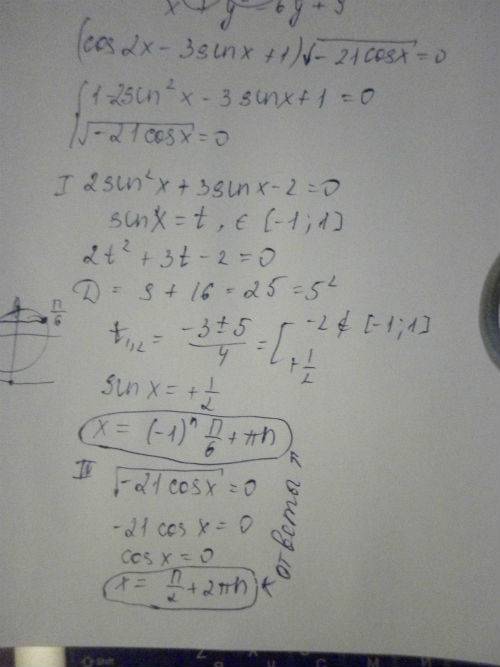 x + y = 6y + 9
(cos2x - 3sinx + 1)√-21cosx = 0
1-2sin²x - 3sinx + 1 = 0
√-21cosx = 0
I 2sin²x + 3sinx - 2 = 0
sinx = t, ∈ [-1; 1]
2t² + 3t - 2 = 0
D = 9 + 16 = 25 = 5²
П/6
t₁,₂ = (-3 ± 5)/4 = [ -2 ∉ [-1; 1]
+1/2
sin x = +1/2
x = (-1)ⁿ П/6 + πn
II √-21cosx = 0
-21 cos x = 0
cos x = 0
x = П/2 + 2πn
ответы